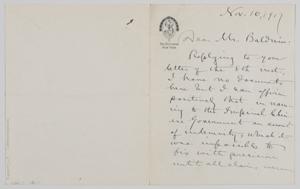 Nov. 10, 1917
Dear Mr. Baldwin.
Replying to your
letter of the 8th inst.,
I have no documents
here but I can affirm
positively that in
to the Imperial Chinese
Government an amount
of indemnity, which it
was impossible to
fix with precision
until all claims were